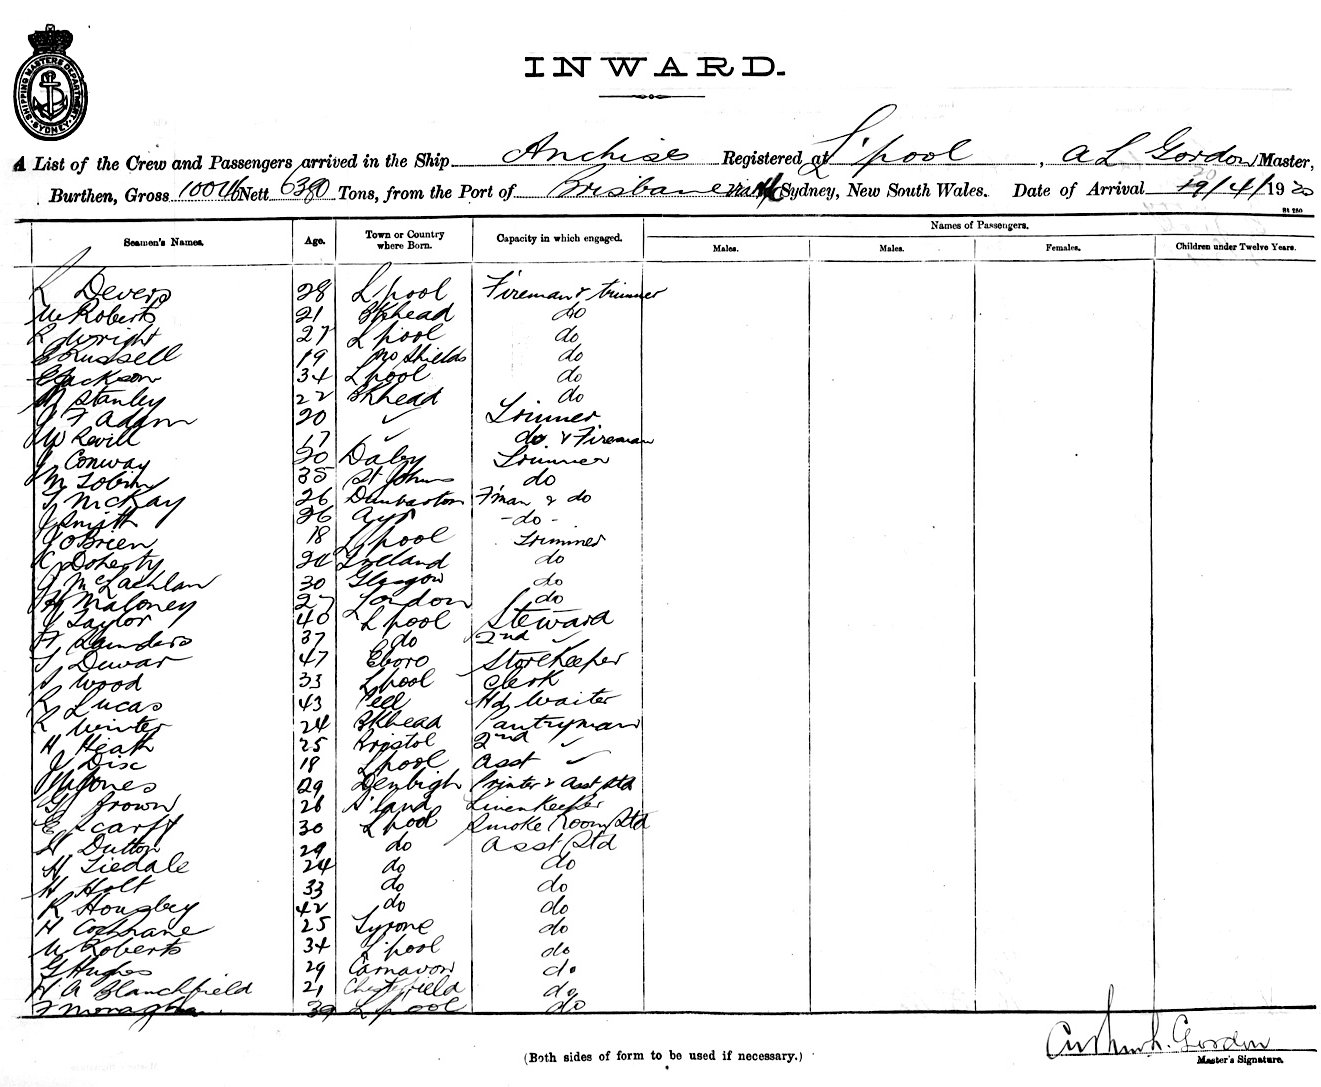 SHIPPING MASTERS DEPARTMENT SYDNEY
INWARD.
A List of the Crew and Passengers arrived in the Ship Anchises Registered at L'pool, A L Gordon Master,
Burthen, Gross Nett 6380 Tons, from the Port of Brisbane Sydney, New South Wales. Date of Arrival /4/1920
Seamen's Names. Age. Town or Country where Born. Capacity in which engaged. Names of Passengers.
Males. Males. Females. Children under Twelve Years.
R Devers 28 L'pool Fireman & trimmer
W Roberts 21 Bkhead do
R Wright 27 L'pool do
Russell 19 No Shields do
Jackson 34 L'pool do
Stanley 22 Bkhead do
J F Adam 20 ✓ Trimmer
W Revill 17 ✓ do & Fireman
J Conway 20 Trimmer
M Tobin 35 St Johns do
T McKay 26 Dumbarton F'man & do
J Smith 26 Ayr - do -
J O'Brien 18 L'pool Trimmer
C Doherty Ireland do
J McLachlan 30 Glasgow do
H Maloney 27 London do
J Taylor 40 L'pool Steward
F Saunders 37 do 2nd ✓
T Dewar 47 Storekeeper
Wood 33 L'pool Clerk
R Lucas 43 Peel Hd Waiter
R Winter 24 Bkhead Pantryman
H Heath 25 Bristol 2nd ✓
J Disc 18 L'pool Asst ✓
Jones 29 Denbigh Printer & Asst Std
G Brown 26 S'land Linenkeeper
E Scarff 30 L'pool Smoke Room Std
Dutton 29 do Asst Std
H Tiedale 24 do do
H Holt 33 do do
R Hougbey 42 do do
H Cochrane 25 Tyrone do
W Roberts 34 L'pool do
G Hughes 29 Carnavon do
H A Blanchfield 21 Chesterfield do
F Monaghan 39 L'pool do
(Both sides of form to be used if necessary.)
Gordon
Master's Signature.